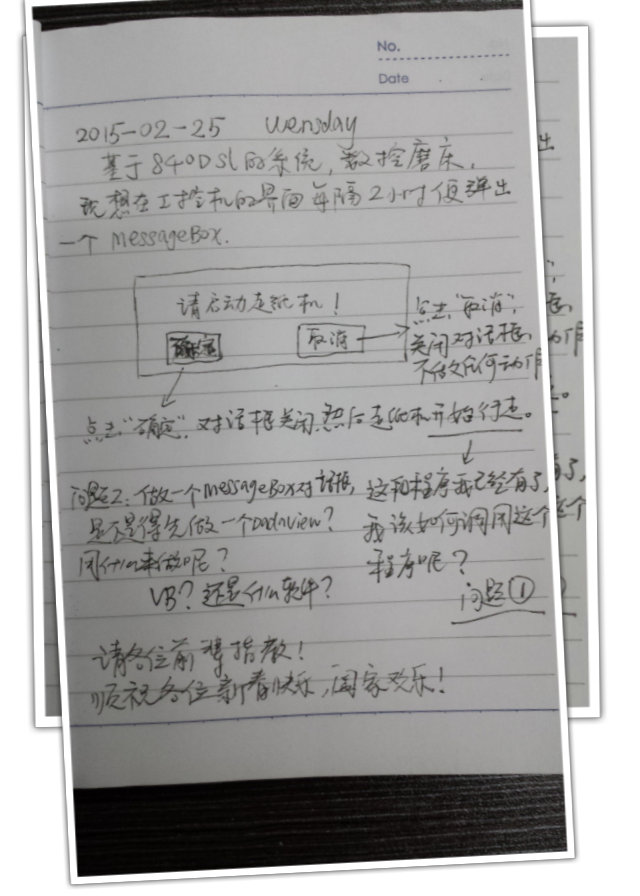 No.
Date
2015-02-25 wensday
基于840Dsl的系统,数控磨床,
现想在工控机的界面每隔2小时便弹出
一个 MessageBox.
请启动走纸机!
确定
取消
点击“取消”,
关闭对话框,
不做任何动作
点击“确定”,对话框关闭,然后走纸机开始行走。
问题2:做一个MessageBox对话框,
是不是得先做一个Dataview?
用什么来做呢?
VB?还是什么软件?
这和程序我已经有了,
我该如何调用这个
程序呢?
问题①
请各位前辈指教!
顺祝各位新春快乐,阖家欢乐!